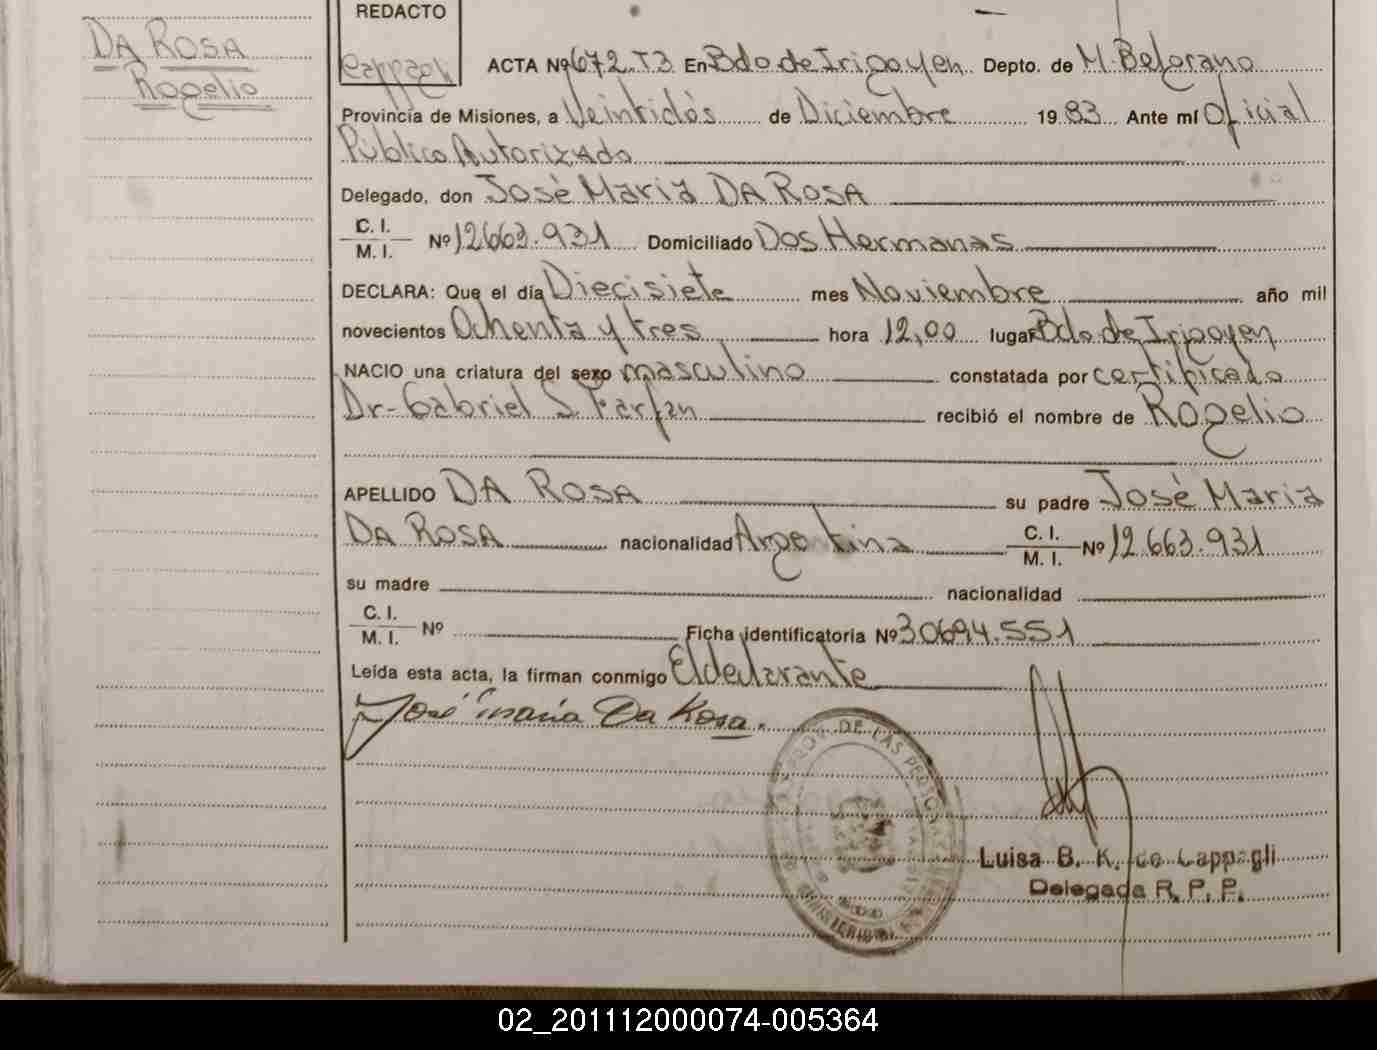 DA ROSA
Rogelio
REDACTO
Cappagli
ACTA Nº 672.T3 En Bdo de Irigoyen Depto. de M. Belgrano
Provincia de Misiones, a Veintidós de Diciembre 19 83 Ante mí Oficial
Público Autorizado
Delegado, don José Maria DA ROSA
C. I.
M. I. Nº 12.663.931 Domiciliado Dos Hermanas
DECLARA: Que el día Diecisiete mes Noviembre año mil
novecientos Ochenta y tres hora 12,00 lugar Bdo de Irigoyen
NACIO una criatura del sexo masculino constatada por certificado
Dr- Gabriel S. Farfan recibió el nombre de Rogelio
APELLIDO DA ROSA su padre José Maria
DA ROSA nacionalidad Argentina C. I.
M. I. Nº 12.663.931
su madre nacionalidad
C. I.
M. I. Nº Ficha identificatoria Nº 30694.551
Leída esta acta, la firman conmigo El declarante
José Maria Da Rosa.
PROV. DE LAS PERSONAS
MINISTERIO
Luisa B. K. de Cappagli
Delegada R. P. P.
02_201112000074-005364